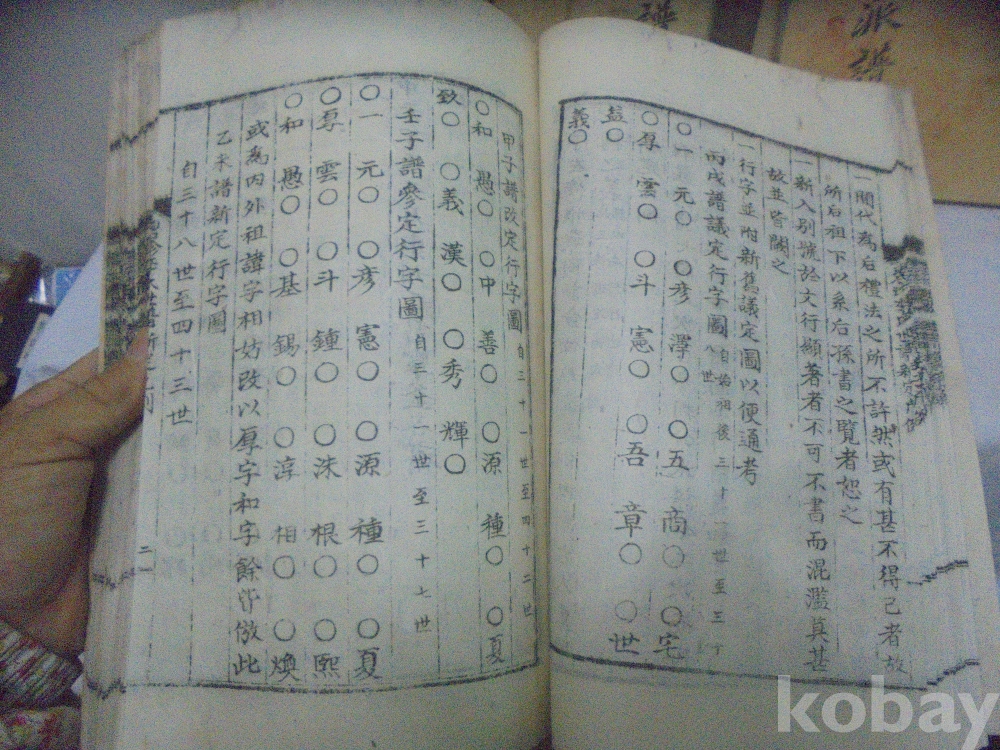 派譜
譜
一間代為后禮法之所不許然或有甚不得已者故
所后祖下以系右孫書之覽者恕之
一新入别號於文行顯著者不可不書而混濫莫甚
故並皆闕之
一行字並附新舊議定圖以便通考
丙戌譜議定行字圖 自始祖後三十一世至三十八世
○一 元○ ○彦 澤○ ○五 商○ ○宅
○厚 雲○ ○斗 憲○ ○吾 章○ ○世
益○
義○
甲子譜改定行字圖 自三十一世至四十二世
○和 愚○ ○中 善○ ○源 種○ ○夏
致○ ○義 漢○ ○秀 輝○
壬子譜參定行字圖 自三十一世至三十七世
○一 元○ ○彦 憲○ ○源 種○ ○夏
○厚 雲○ ○斗 鍾○ ○洙 根○ ○熙
○和 愚○ ○基 錫○ ○淳 相○ ○煥
或為内外祖諱字相妨改以厚字和字餘皆倣此
乙未譜新定行字圖
自三十八世至四十三世
二
kobay